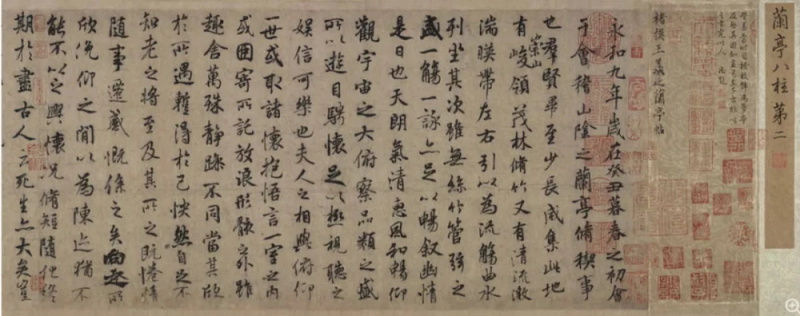 蘭亭八柱第二
褚模王羲之蘭亭帖
永和九年歲在癸丑暮春之初會
于會稽山陰之蘭亭脩稧事
也羣賢畢至少長咸集此地
有崇山峻領茂林脩竹又有清流激
湍暎帶左右引以為流觴曲水
列坐其次雖無絲竹管弦之
盛一觴一詠亦足以暢敘幽情
是日也天朗氣清惠風和暢仰
觀宇宙之大俯察品類之盛
所以遊目騁懷足以極視聽之
娛信可樂也夫人之相與俯仰
一世或取諸懷抱悟言一室之內
或因寄所託放浪形骸之外雖
趣舍萬殊靜躁不同當其欣
於所遇蹔得於己怏然自足不
知老之將至及其所之既惓情
隨事遷感慨係之矣向之所
欣俛仰之間以為陳迹猶不
能不以之興懷況脩短隨化終
期於盡古人云死生亦大矣豈